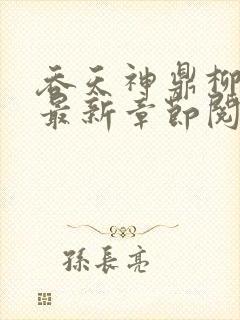 吞天神鼎柳
最新章节阅
孫長亮